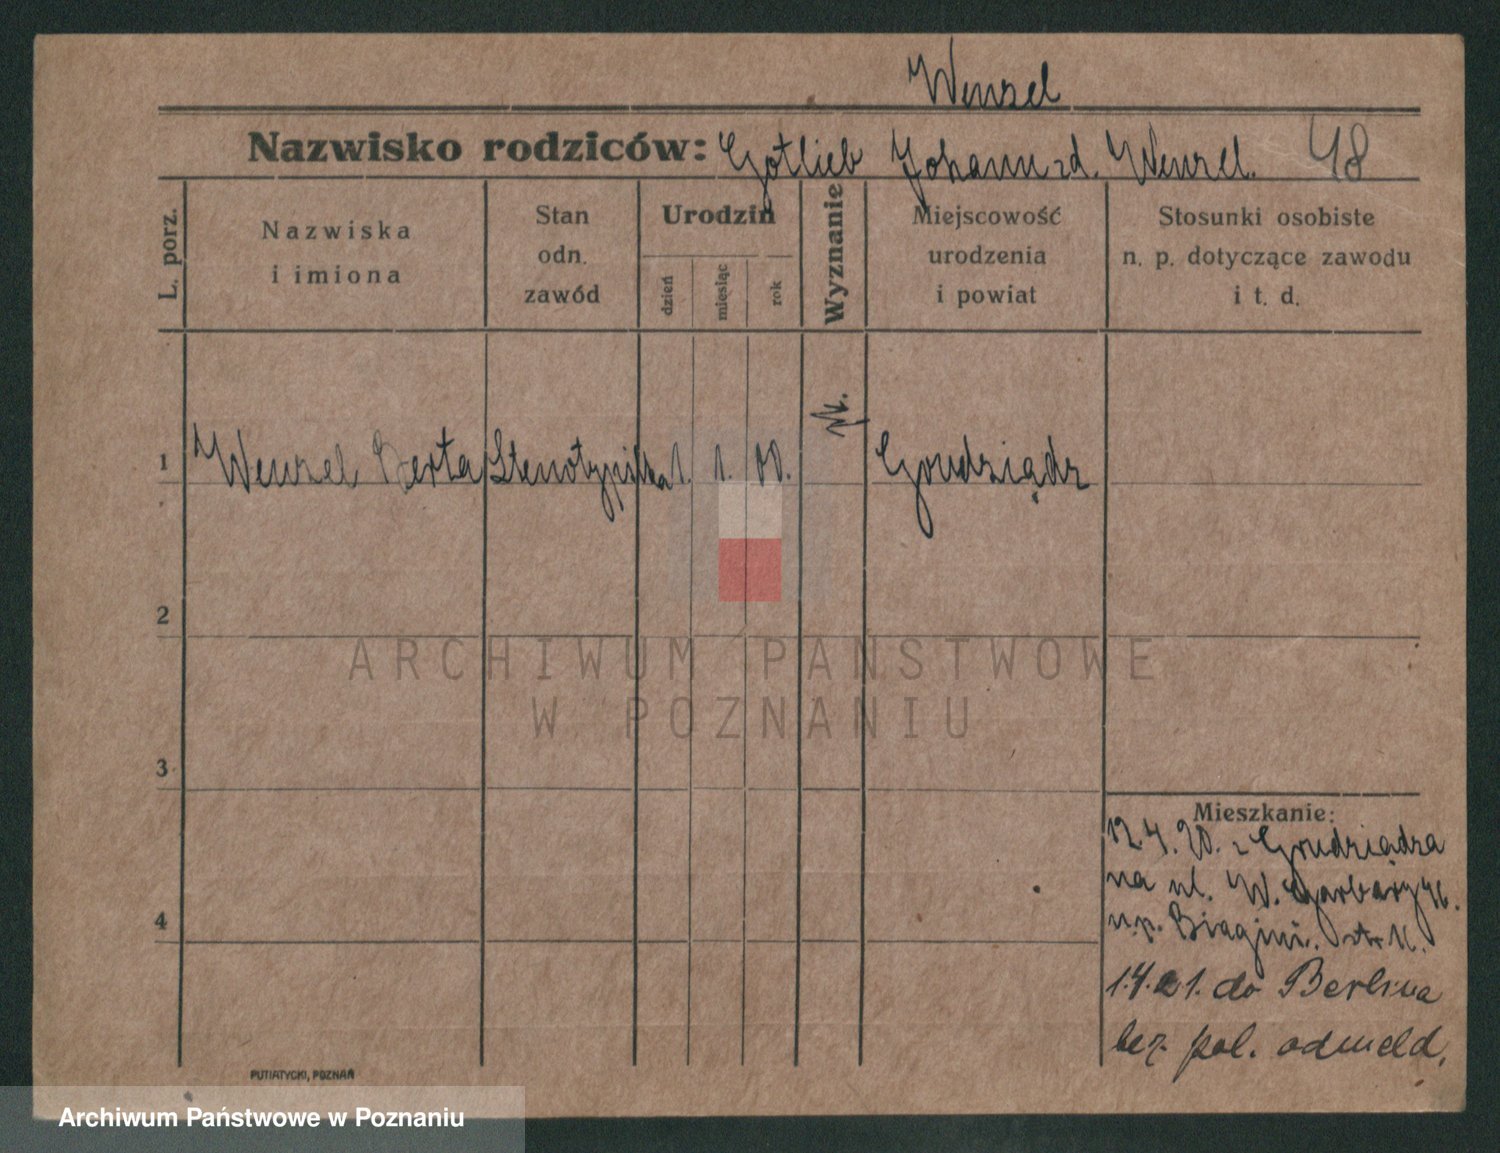 Wenzel
Nazwisko rodziców: Gotlieb Johann zd. Wenzel. 48
L. porz.
Nazwiska
i imiona
Stan
odn.
zawód
Urodzin
dzień
miesiąc
rok
Wyznanie
Miejscowość
urodzenia
i powiat
Stosunki osobiste
n. p. dotyczące zawodu
i t. d.
1 Wenzel Berta Stenotypistka 1. 1. 00. Grudziądz
2
3
4
Mieszkanie:
12.4.20. z Grudziądza
na ul. W. Garbary 46.
u.p. Biagini.
1.4.21. do Berlina
bez pol. odmeld.
PUTIATYCKI, POZNAŃ
ARCHIWUM PAŃSTWOWE
W POZNANIU
Archiwum Państwowe w Poznaniu